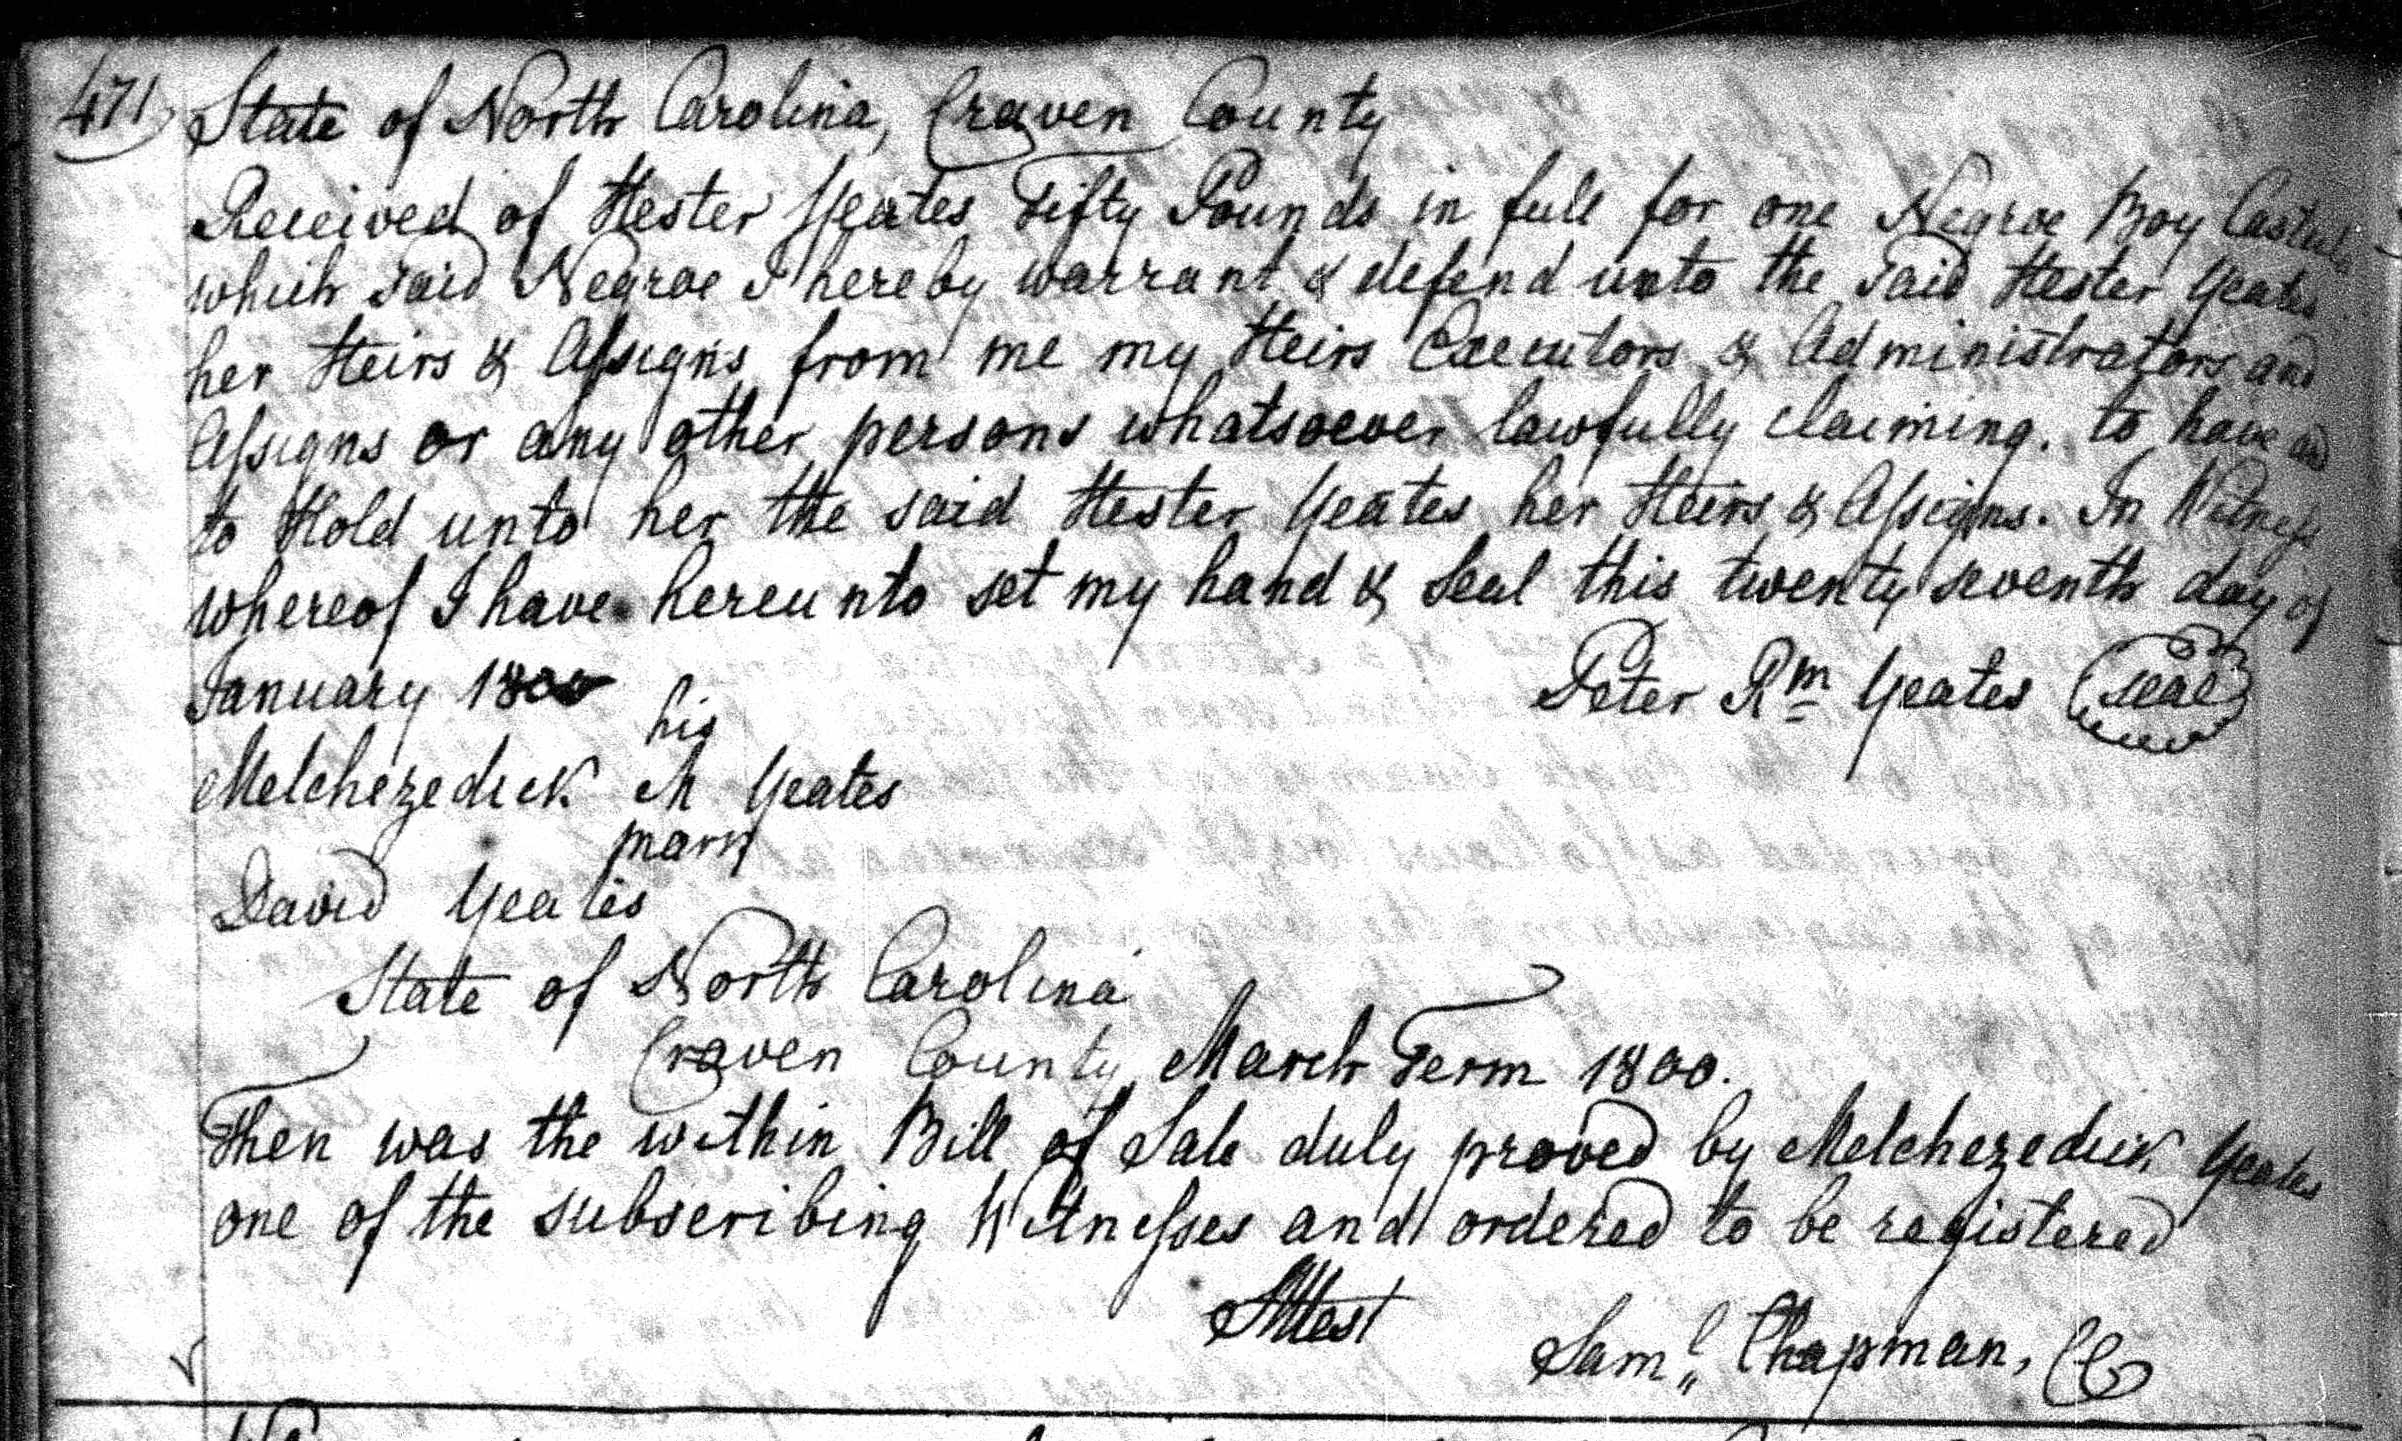 471 State of North Carolina, Craven County
Received of Hester Yeates Fifty Pounds in full for one Negroe Boy
which said Negroe I hereby warrant & defend unto the said Hester Yeates
her Heirs & Assigns from me my Heirs Executors & Administrators and
Assigns or any other persons whatsoever lawfully claiming. to have and
to Hold unto her the said Hester Yeates her Heirs & Assigns. In Witness
whereof I have hereunto set my hand & Seal this twenty seventh day of
January 1800 Peter Rm Yeates Seal
his
Melchezedick M Yeates
mark
David Yeates
State of North Carolina
Craven County March Term 1800.
Then was the within Bill of Sale duly proved by Melchezedick Yeates
one of the subscribing Witnesses and ordered to be registered
Attest
Saml Chapman, CC